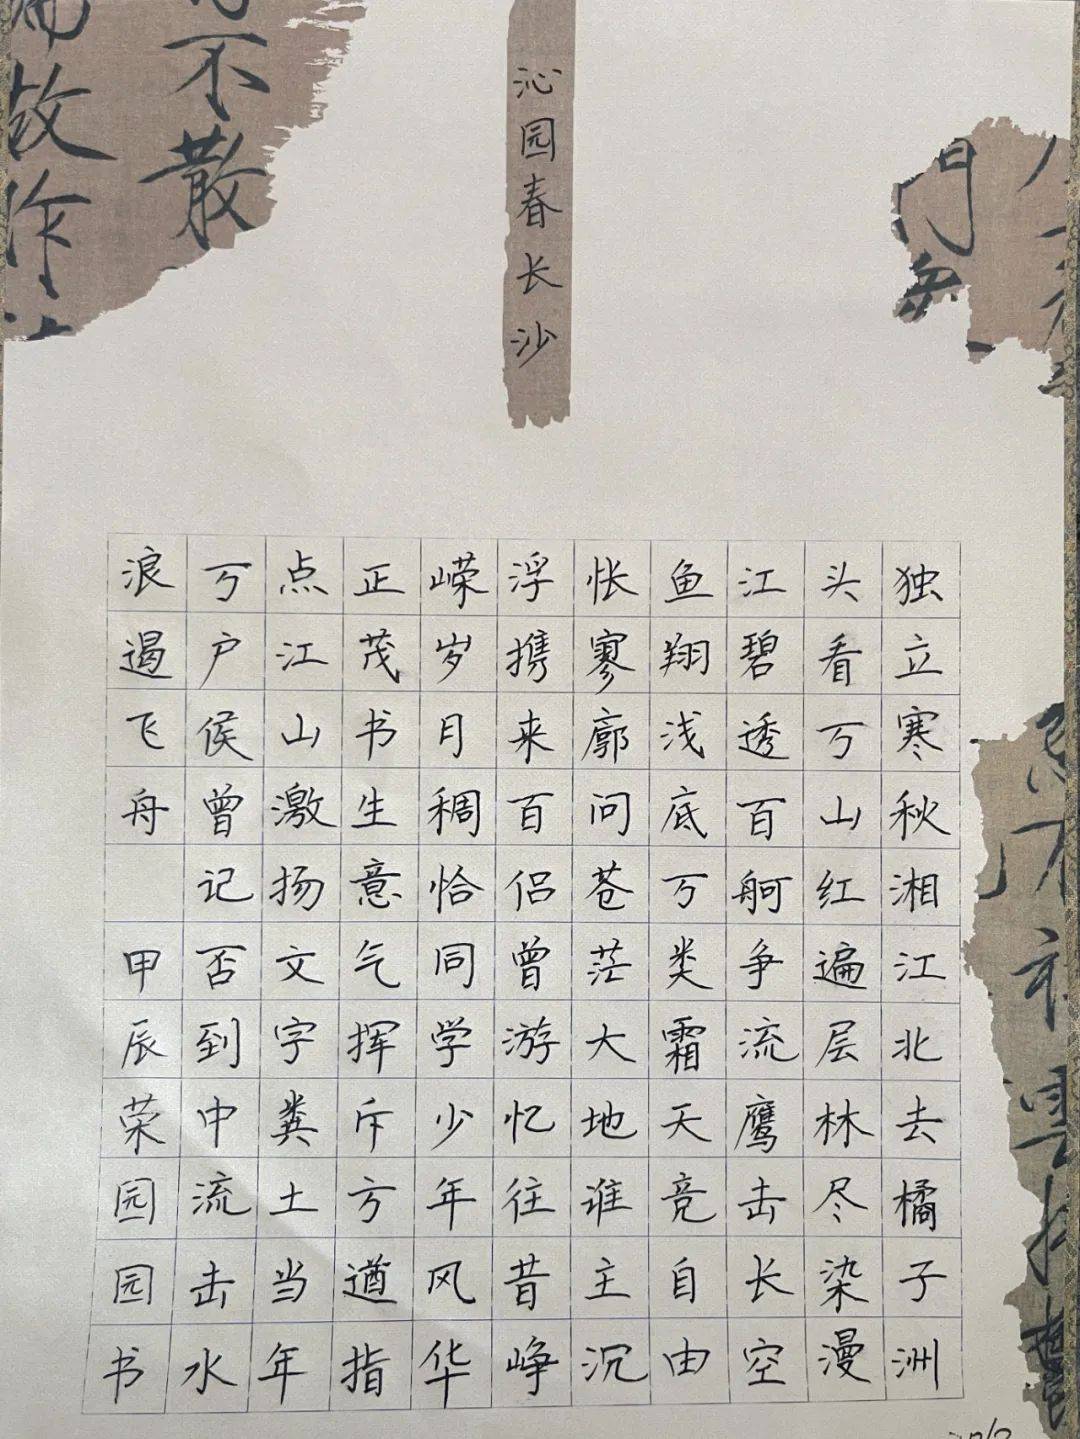 沁园春长沙
独立寒秋湘江北去橘子洲
头看万山红遍层林尽染漫
江碧透百舸争流鹰击长空
鱼翔浅底万类霜天竞自由
怅寥廓问苍茫大地谁主沉
浮携来百侣曾游忆往昔峥
嵘岁月稠恰同学少年风华
正茂书生意气挥斥方遒指
点江山激扬文字粪土当年
万户侯曾记否到中流击水
浪遏飞舟 甲辰荣园园书
不散
故作